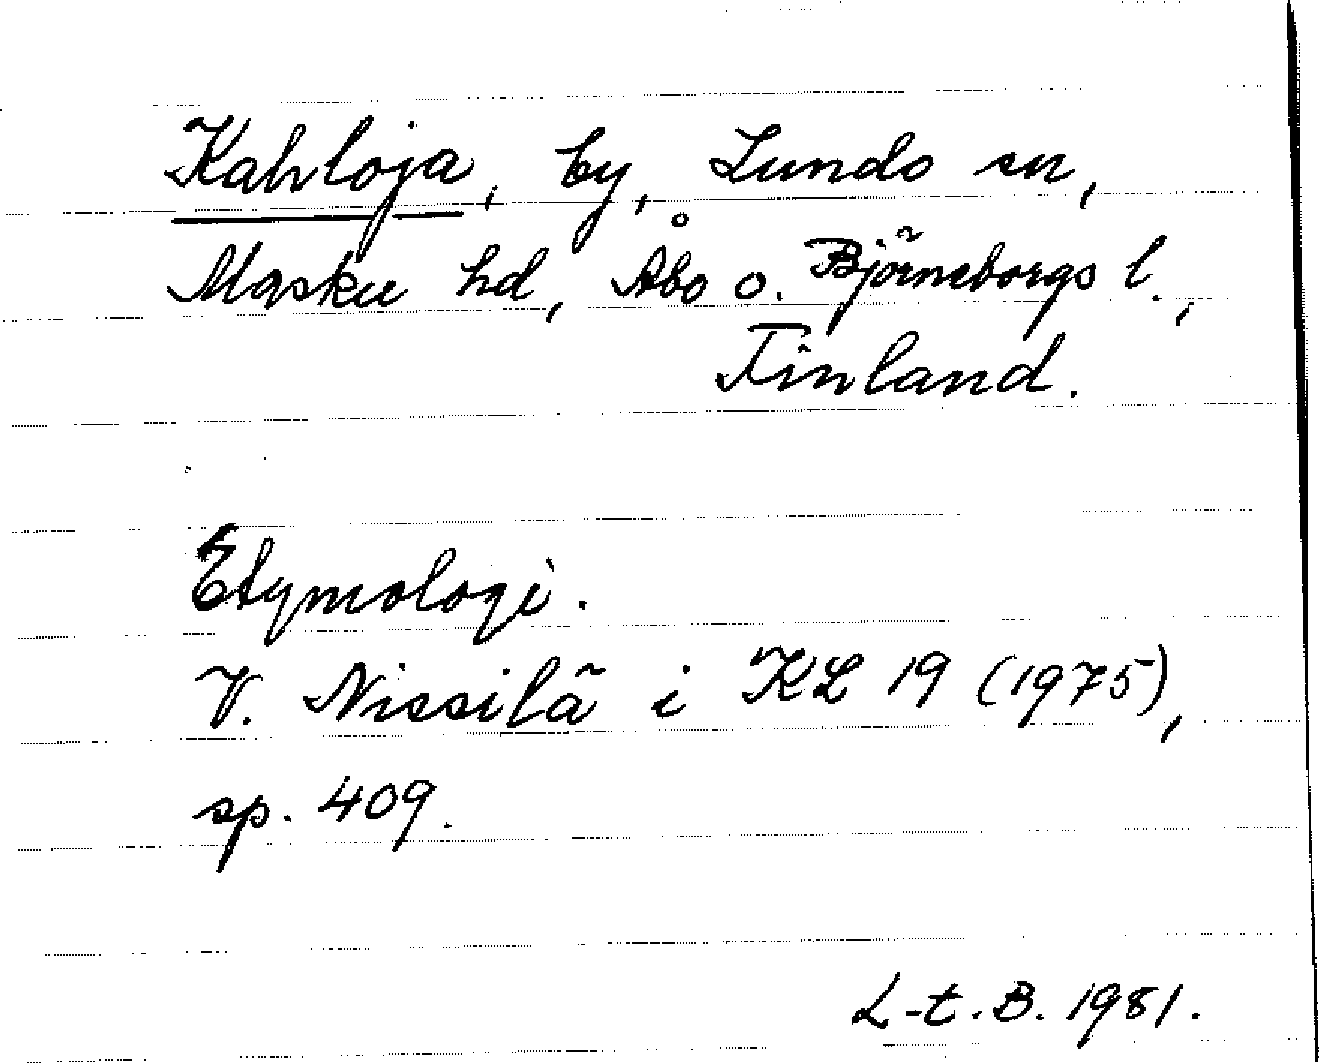 Kahloja, by, Lundo sn,
Masku hd, Åbo o. Björneborgs l.,
Finland.
Etymologi.
V. Nissilä i KL 19 (1975),
sp. 409.
L-t. B. 1981.